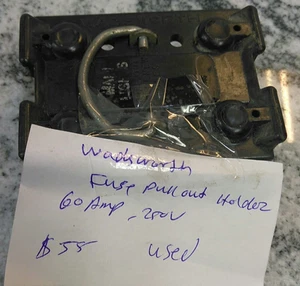 Wadsworth
Fuse Pullout Holder
60 Amp - 250V
$55 used